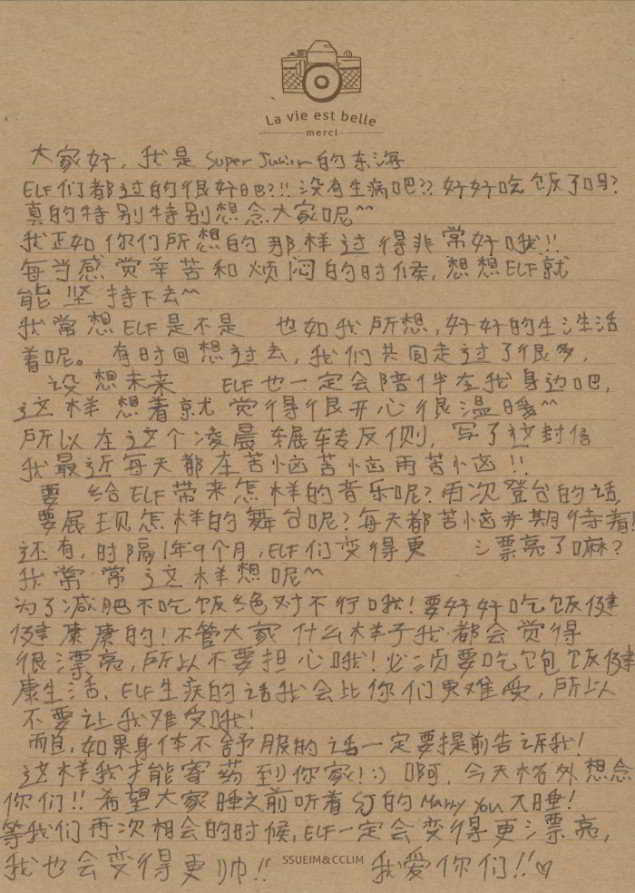 La vie est belle
merci
大家好,我是 Super Junior 的东海
ELF们都过的很好吧?!!没有生病吧??好好吃饭了吗?
真的特别特别想念大家呢^^
我正如你们所想的那样过得非常好哦!!
每当感觉辛苦和烦闷的时候,想想ELF就
能坚持下去^^
我常想ELF是不是 也如我所想,好好的生活生活
着呢。有时回想过去,我们共同走过了很多,
设想未来 ELF也一定会陪伴在我身边吧,
这样想着就觉得很开心很温暖^^
所以在这个凌晨辗转反侧,写了这封信
我最近每天都在苦恼苦恼再苦恼!!
要给ELF带来怎样的音乐呢?再次登台的话,
要展现怎样的舞台呢?每天都苦恼并期待着!
还有,时隔1年9个月,ELF们变得更 漂亮了嘛?
我常常这样想呢^^
为了减肥不吃饭绝对不行哦!要好好吃饭健
健康康的!不管大家什么样子我都会觉得
很漂亮,所以不要担心哦!必须要吃饱饭健
康生活,ELF生病的话我会比你们更难受,所以
不要让我难受哦!
而且,如果身体不舒服的话一定要提前告诉我!
这样我才能寄药到你家!:) 啊,今天格外想念
你们!!希望大家睡之前听着 的Marry You入睡!
等我们再次相会的时候,ELF一定会变得更漂亮,
我也会变得更帅!! 我爱你们!!♡
SSUEIM&CCLIM